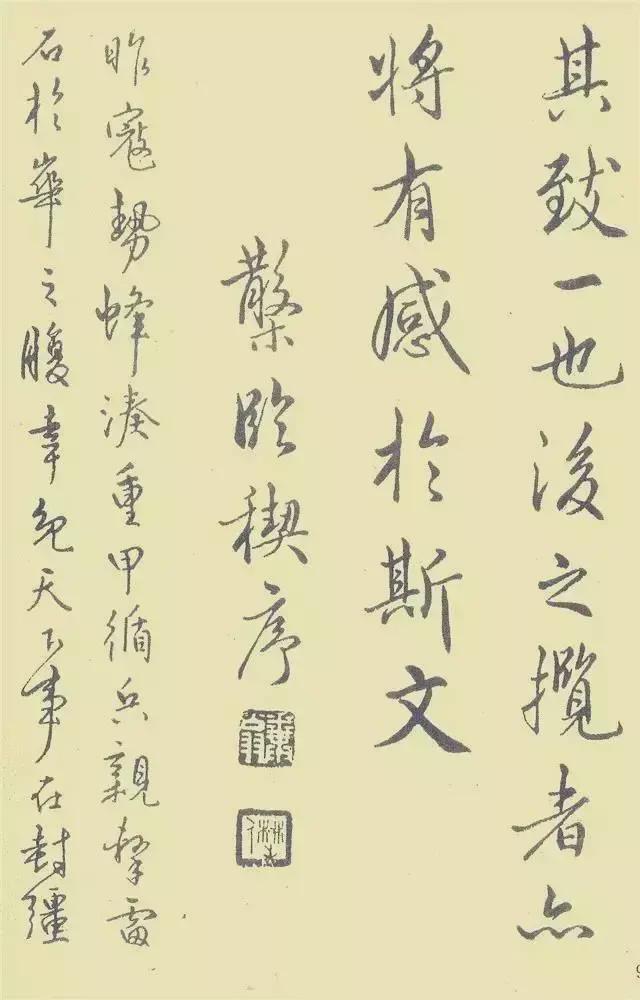 其致一也後之攬者亦
將有感於斯文
檠臨稧序
昨寇勢蜂湊重甲循兵親擊雷
石於華之腹幸免天下事在封疆